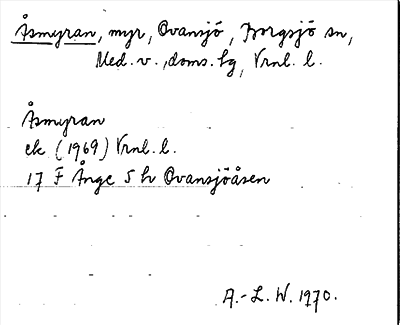 Åsmyran, myr, Ovansjö, Borgsjö sn,
Med. v., doms. hg, Vrnl. l.
Åsmyran
ek (1969) Vrnl. l.
17 F Ånge S h Ovansjöåsen
A.-L. W. 1970.